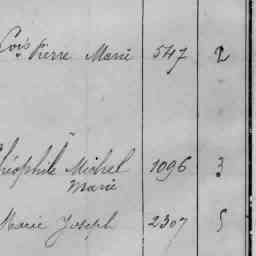 Cois Pierre Marie 547 2
Théophile Michel 1096 3
Marie
Marie Joseph 2307 5